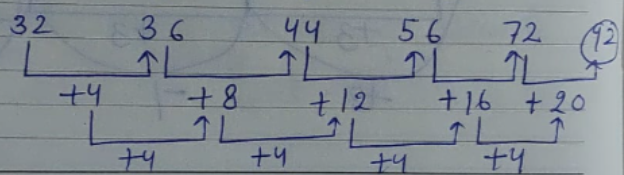 32 36 44 56 72 92
+4 +8 +12 +16 +20
+4 +4 +4 +4